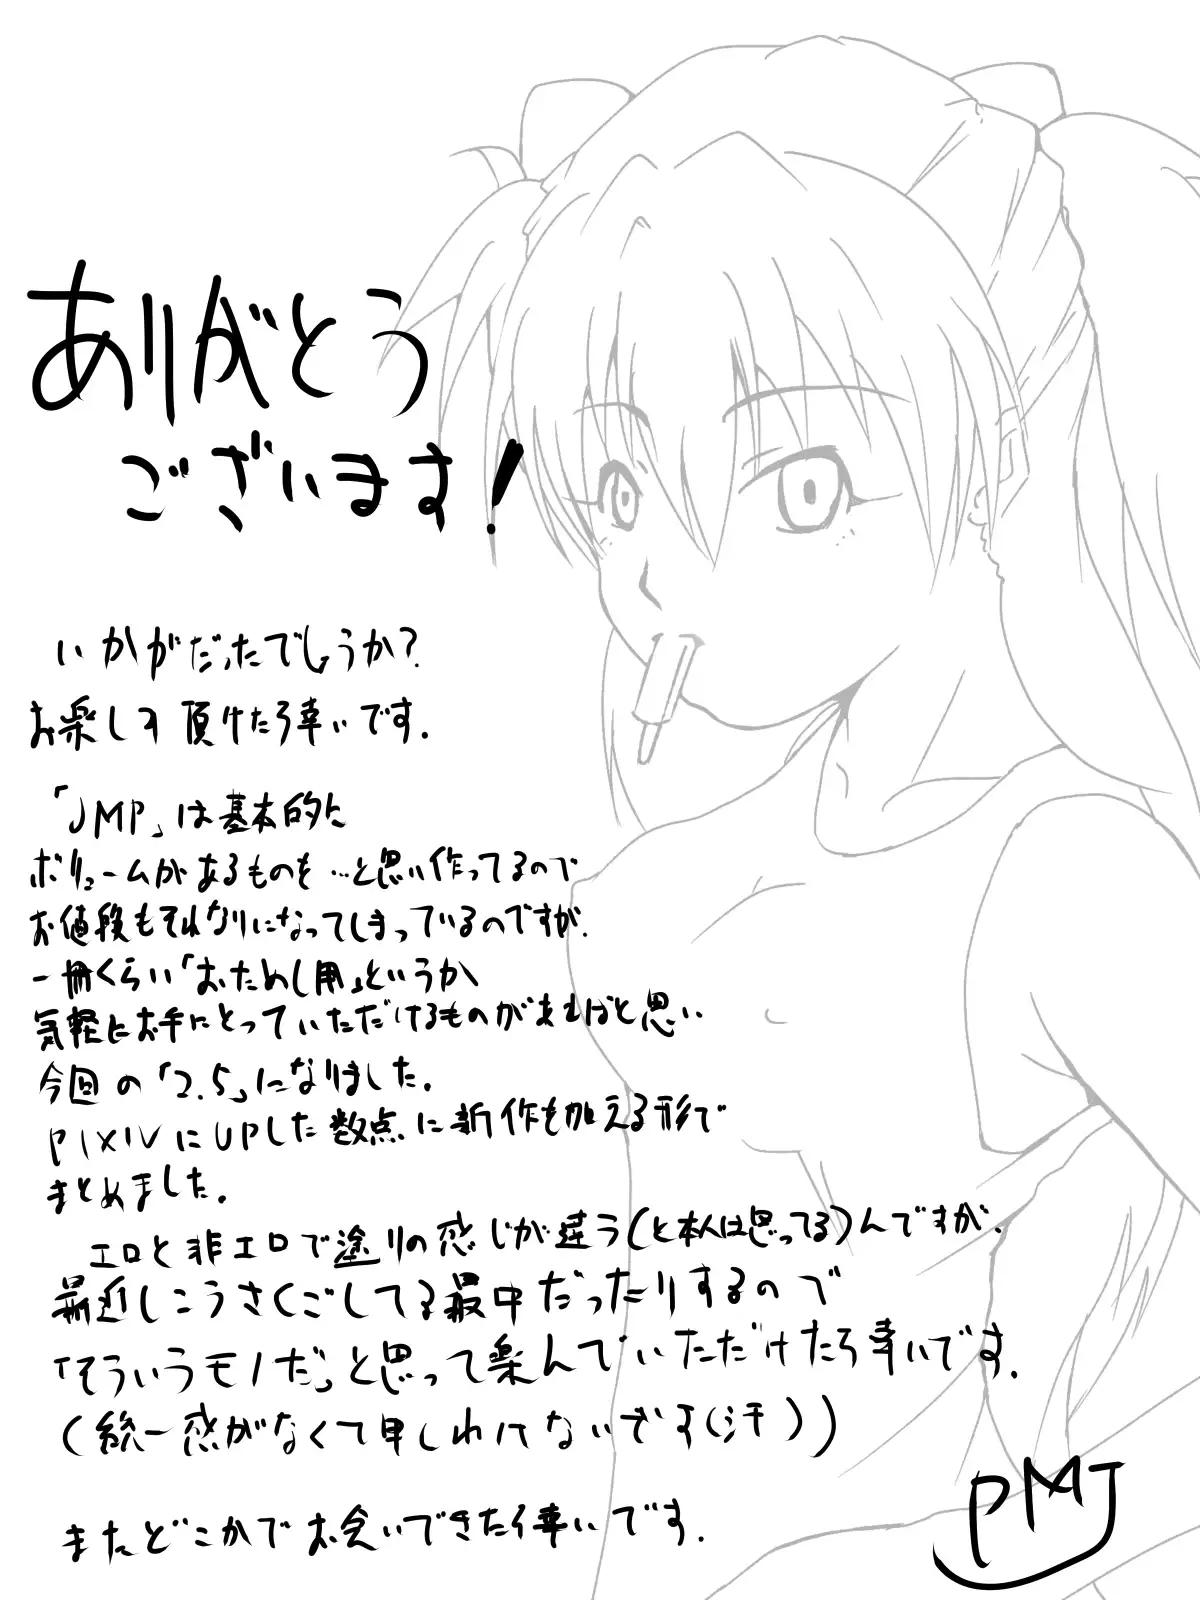 ありがとう
ございます!
いかがだったでしょうか?
お楽しみ頂けたら幸いです.
「JMP」は基本的に
ボリュームがあるものを…と思い作ってるので
お値段もそれなりになってしまっているのですが.
一冊くらい「おためし用」というか
気軽にお手にとっていただけるものがあればと思い
今回の「2.5」になりました.
PIXIVにUPした数点に新作も加える形で
まとめました.
エロと非エロで塗りの感じが違う(と本人は思ってる)んですが.
最近しこうさくごしてる最中だったりするので
「そういうモノだ」と思って楽んでいただけたら幸いです.
(統一感がなくて申しわけないです(汗))
またどこかでお会いできたら幸いです.
PMJ